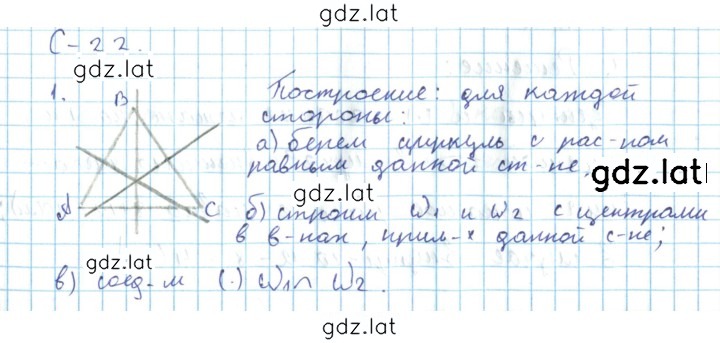 gdz.lat
С-22.
gdz.lat
1.
B
A
C
Построение: для каждой
стороны:
а) берем циркуль с рас-ном
равным данной ст-не,
gdz.lat
gdz.lat
б) строим ω1 и ω2 с центрами
в в-нах, прил-х данной с-не;
gdz.lat
в) соед-м (·) ω1∩ ω2.
gdz.lat